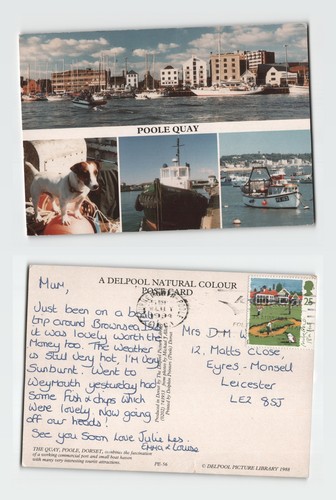 © DELPOOL PICTURE LIBRARY 1988
POOLE QUAY
A DELPOOL NATURAL COLOUR
POST CARD
Mum,
Just been on a boat
trip around Brownsea Isl.
it was lovely worth the
Money too. The weather
is still very hot, I'm very
Sunburnt. Went to
Weymouth yesterday had
Some Fish & chips which
were lovely. Now going
off our heads!
See you Soon Love Julie Les.
Emma & Louise
THE QUAY, POOLE, DORSET,
of a working commercial port and small boat haven
with many very interesting tourist attractions.
PE-56
25
Mrs D M W
12, Matts Close,
Eyres-Monsell
Leicester
LE2 8SJ
© DELPOOL PICTURE LIBRARY 1988